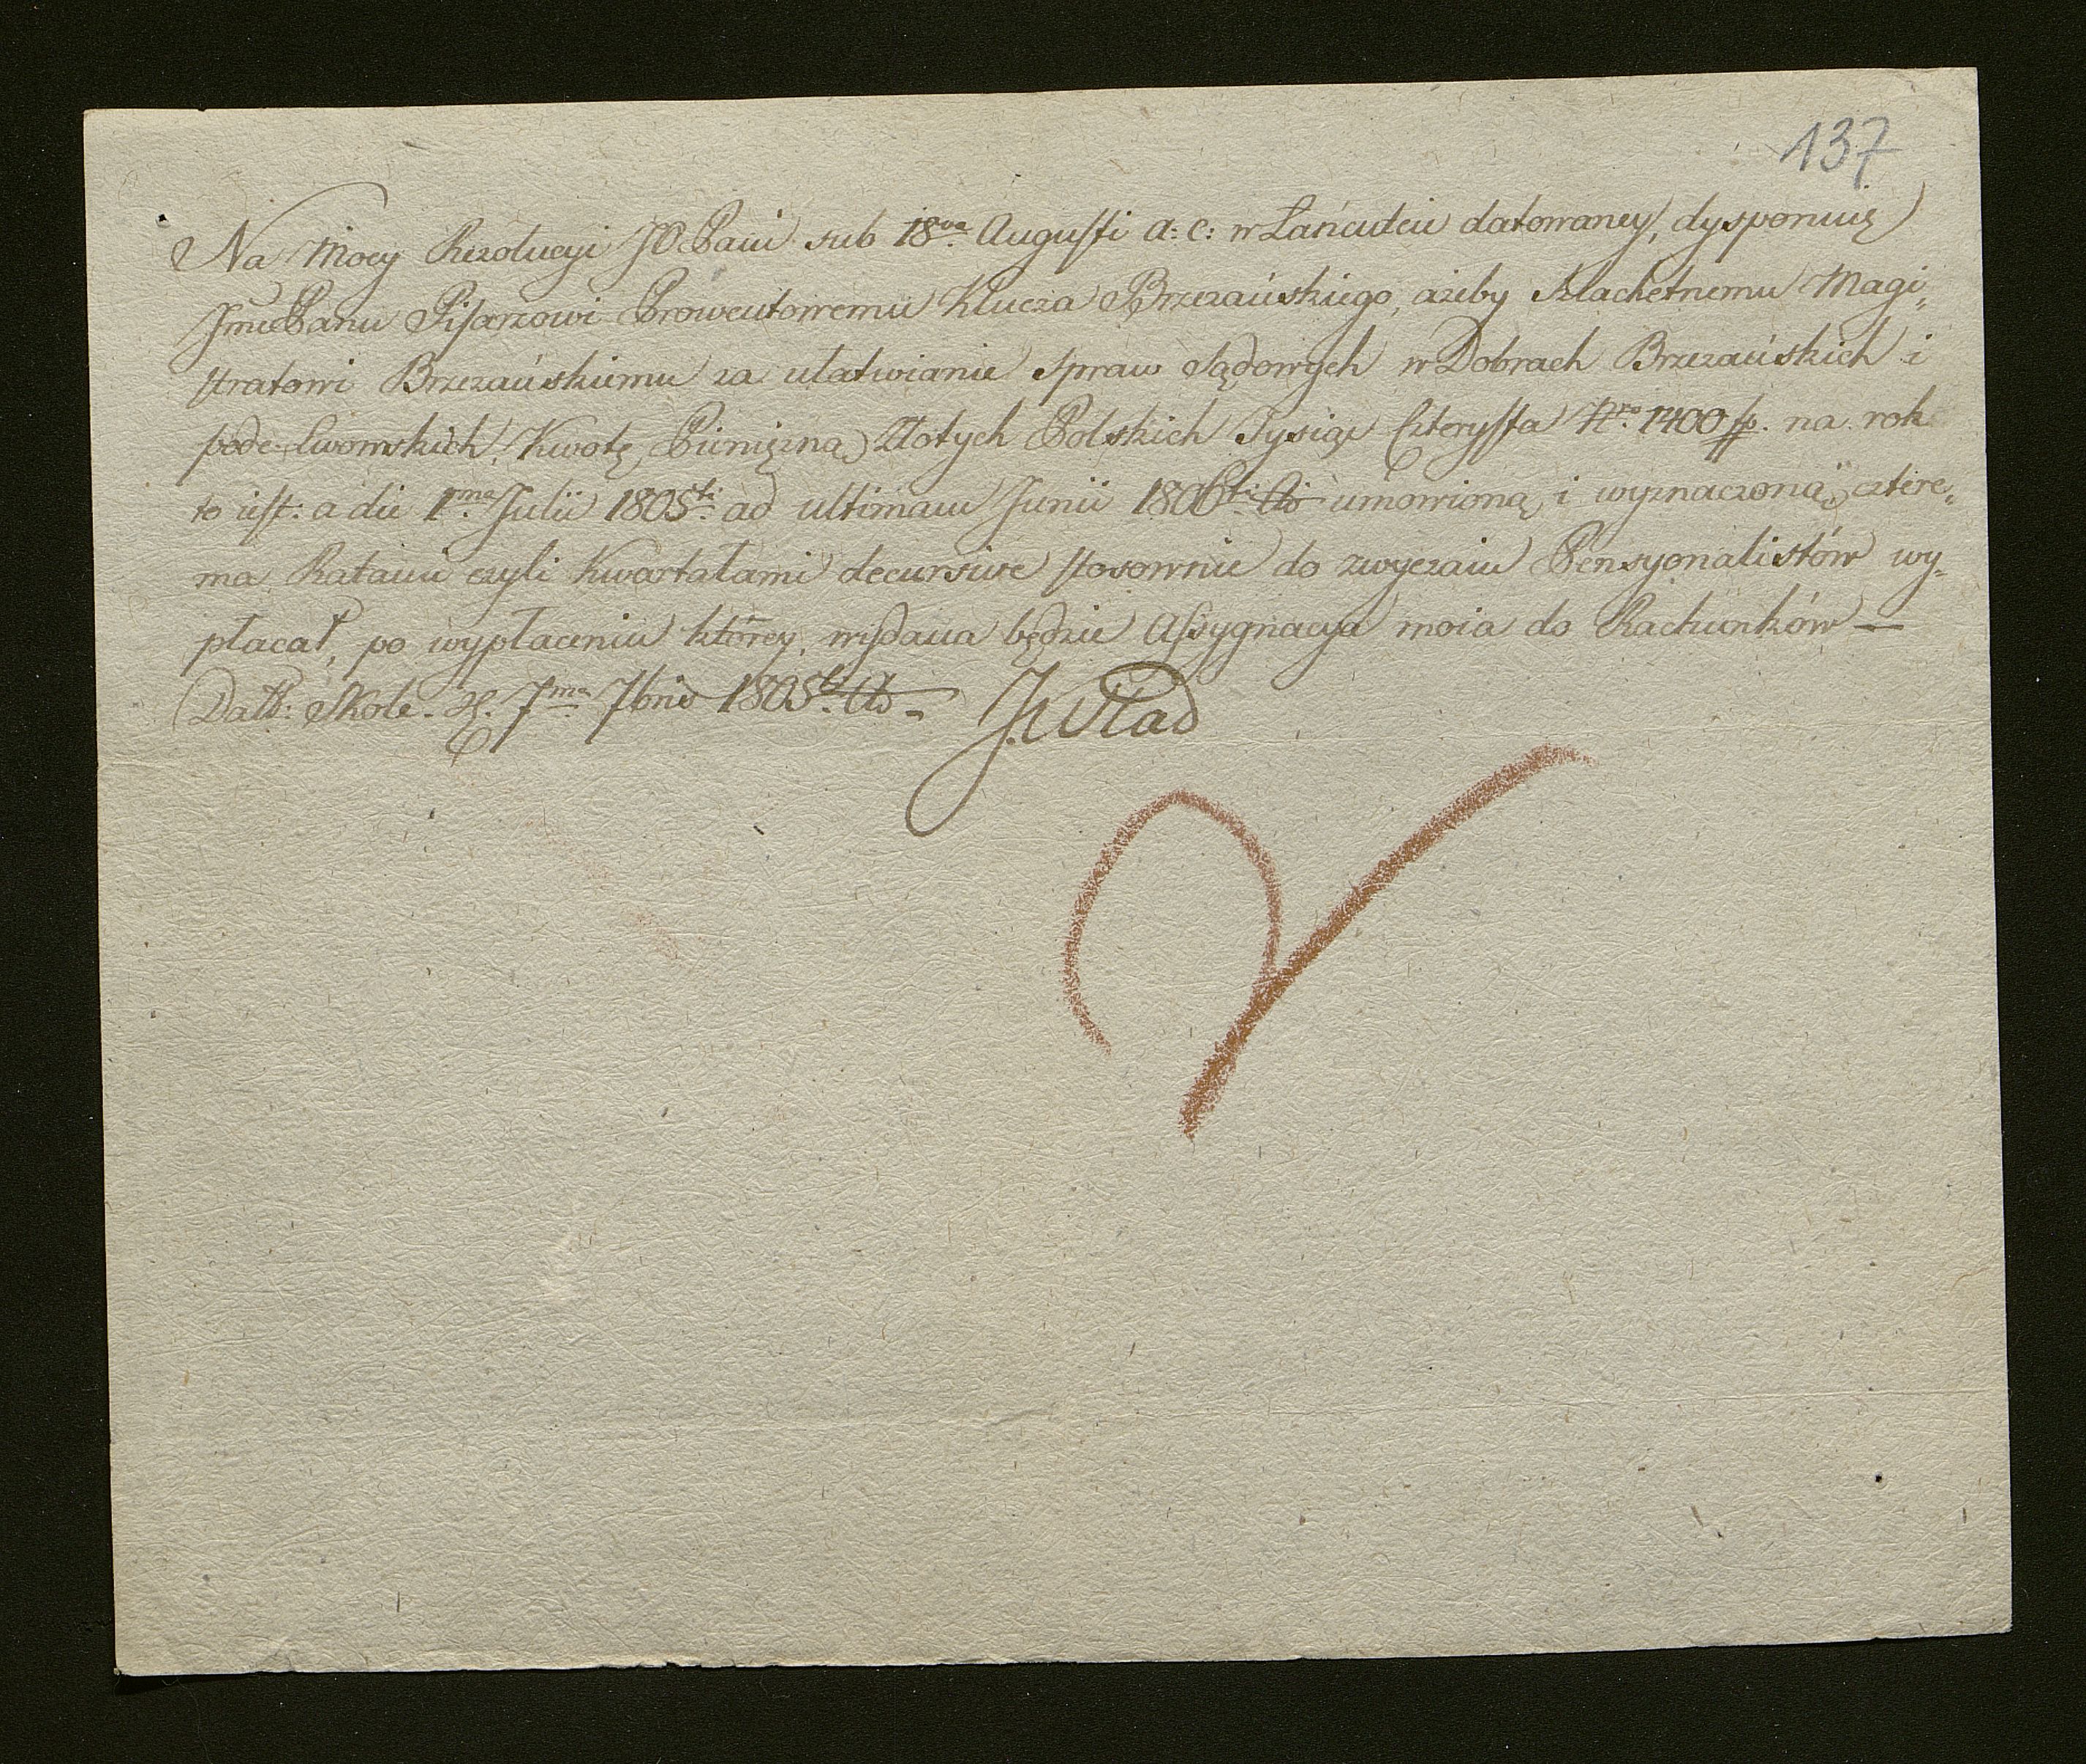 137
Na Mocy Rezolucyi JO Pani sub 18va Augusti a: c: w Łańcucie datowaney, dysponuię
Jmć Panu Pisarzowi Prowentowemu Klucza Brzezańskiego, ażeby Szlachetnemu Magi„
stratowi Brzezańskiemu za ułatwianie spraw Sądowych w Dobrach Brzezańskich i
pode Lwowskich, Kwotę Pieniężną Złotych Polskich Tysiąc Czterysta Nro 1400 fp. na rok
to iest: a die 1ma Julii 1805ti ad ultimam Junii 1806ti Ao umowioną i wyznaczoną, cztere„
ma Ratami czyli Kwartałami decursive stosownie do zwyczaiu Pensyonalistów wy„
płacał, po wypłaceniu którey, wydana będzie Assygnacya moia do Rachunków —
Datt: Skole. d. 7ma 7bris 1805ti Ao -